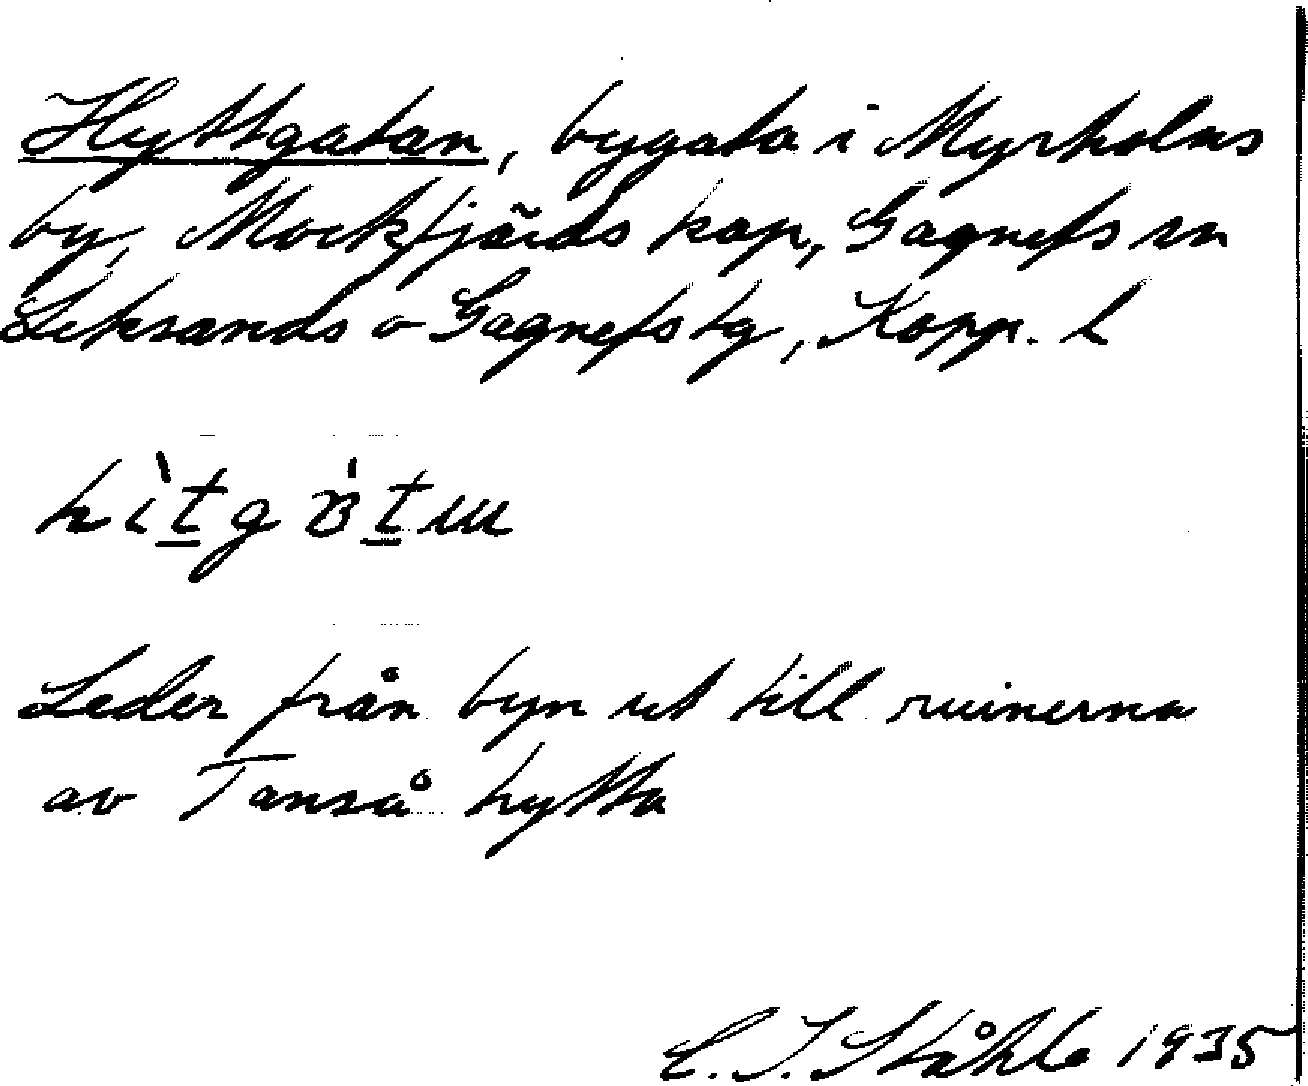 Hyttgatan, bygata i Myrholns
by, Mockfjärds kap, Gagnefs sn
Leksands o Gagnefs tg, Kopp. l
Leder från byn ut till ruinerna
av Tanså hytta
C. I. Ståhle 1935